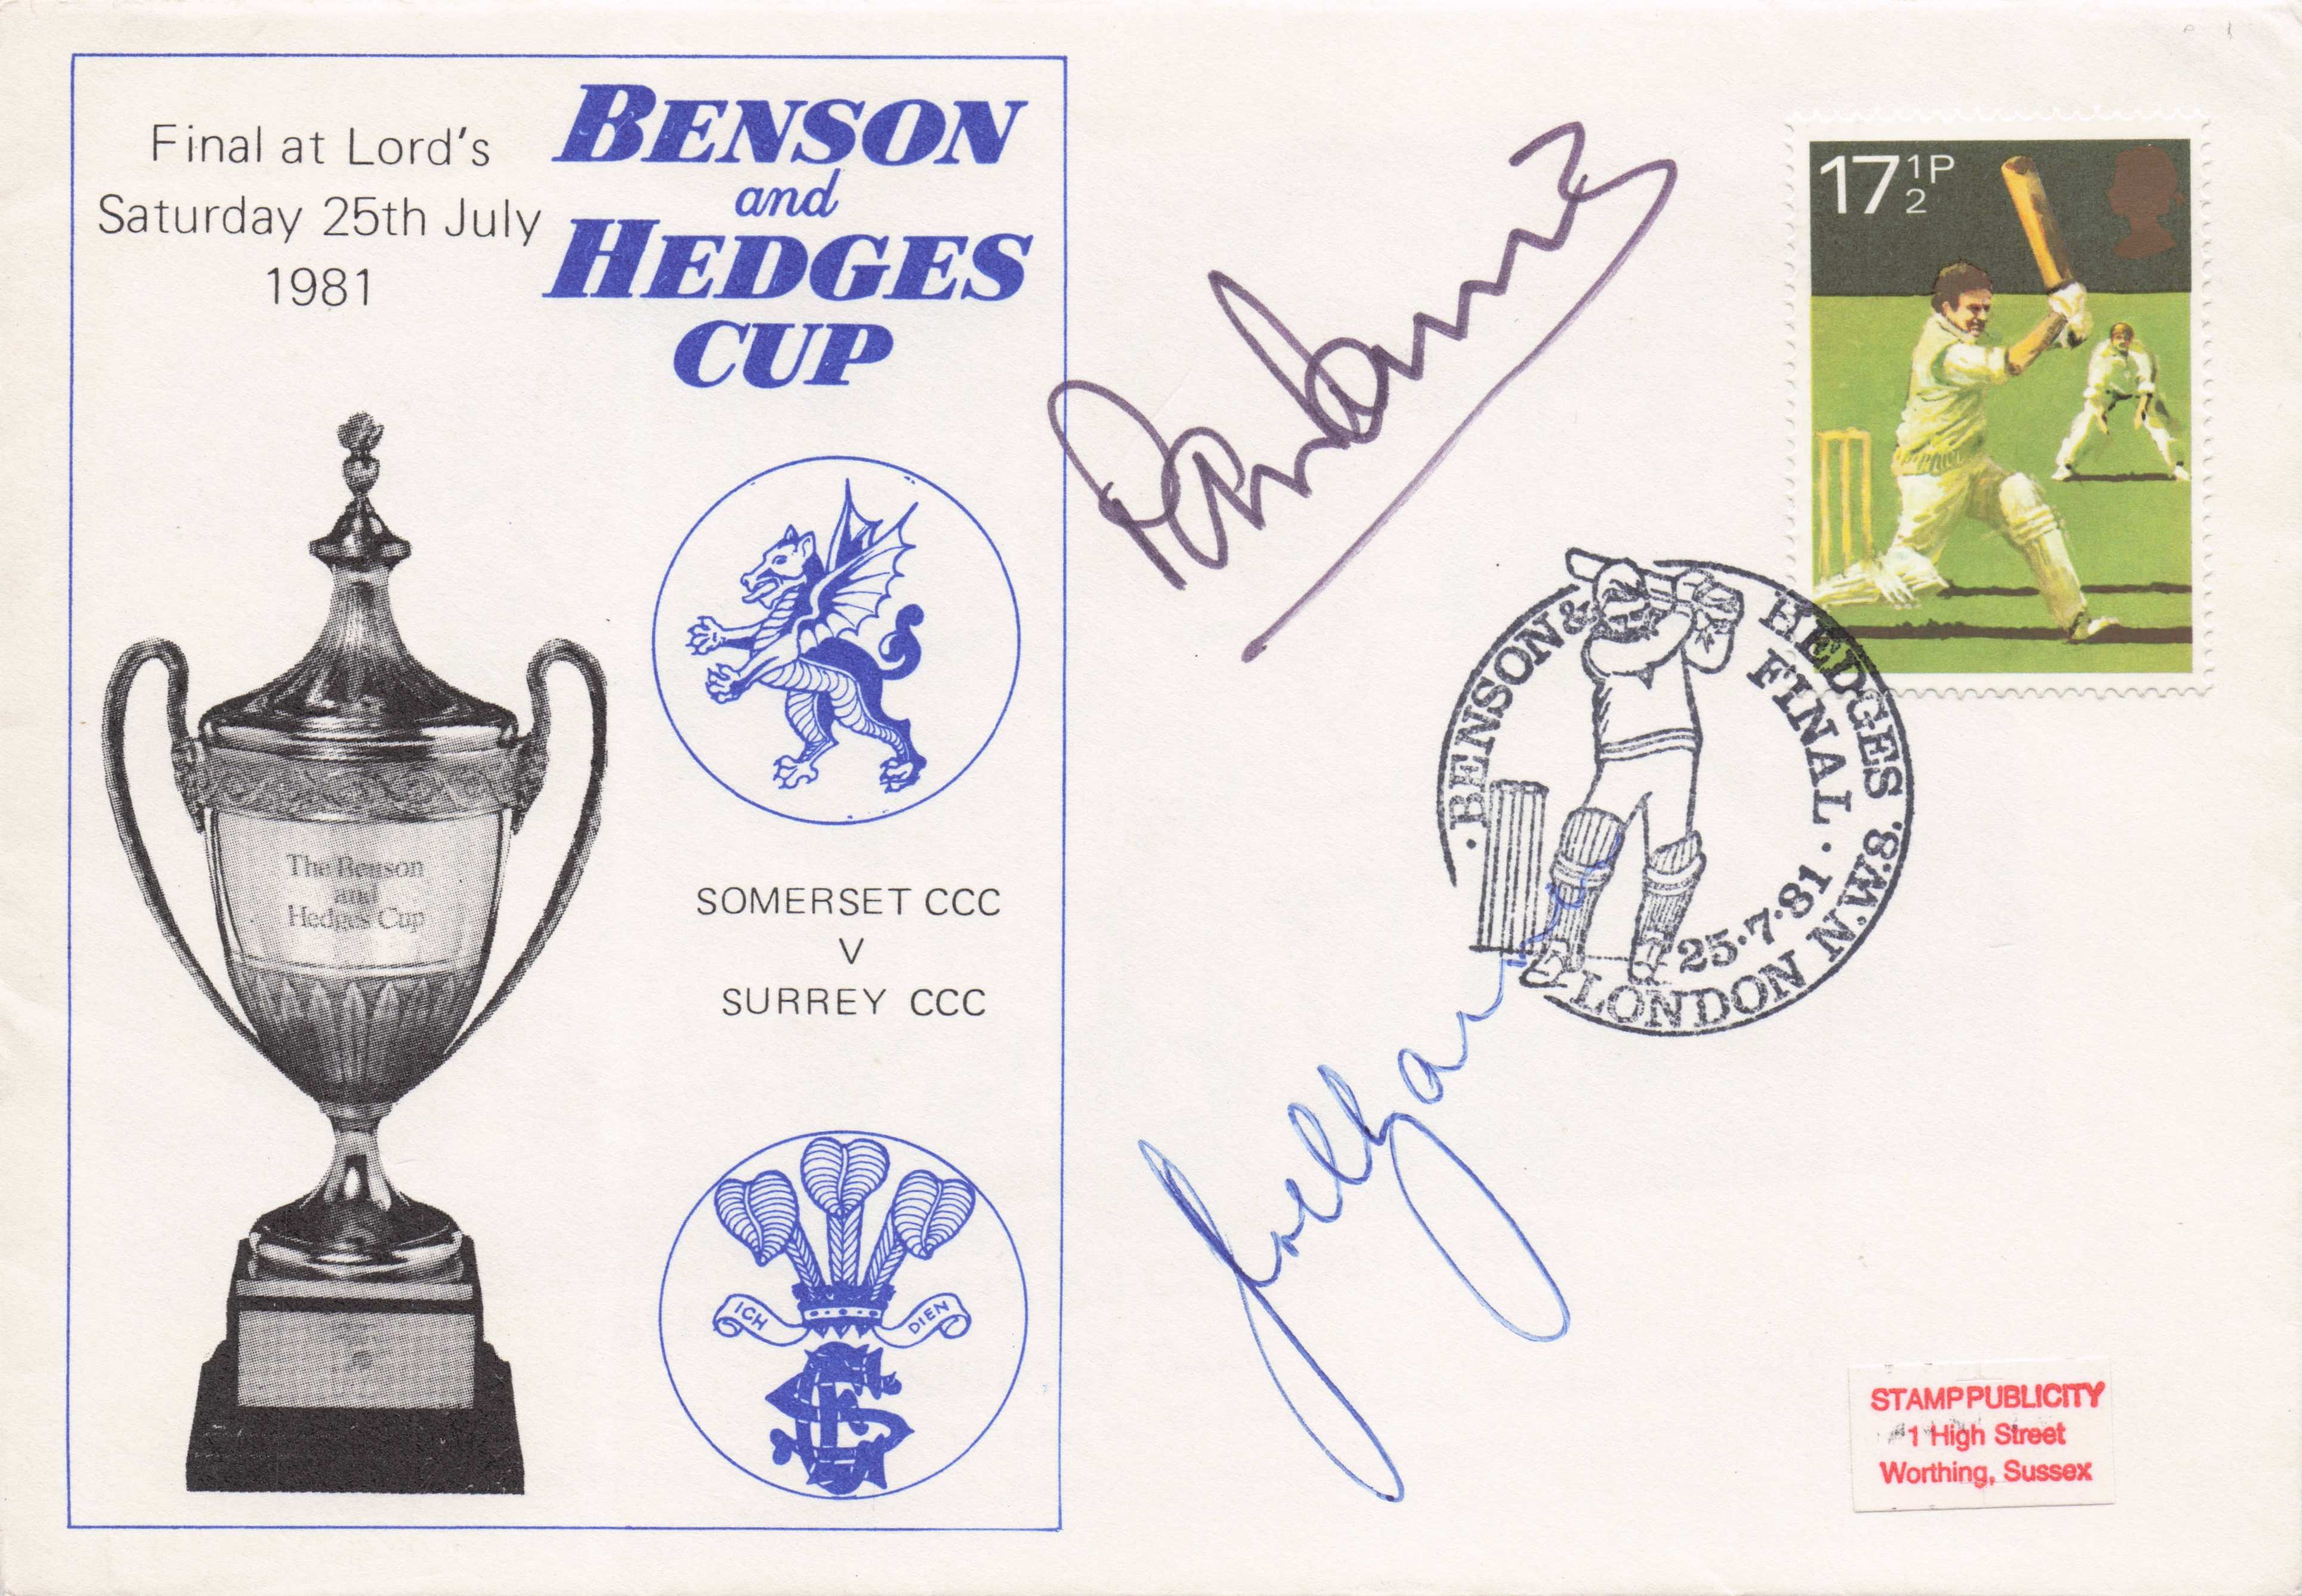 Final at Lord's
Saturday 25th July
1981
BENSON
and
HEDGES
CUP
The Benson
and
Hedges Cup
SOMERSET CCC
V
SURREY CCC
ICH DIEN
17½P
· BENSON & HEDGES
FINAL ·
25·7·81 ·
LONDON N.W.8.
Joel Garner
STAMP PUBLICITY
1 High Street
Worthing, Sussex